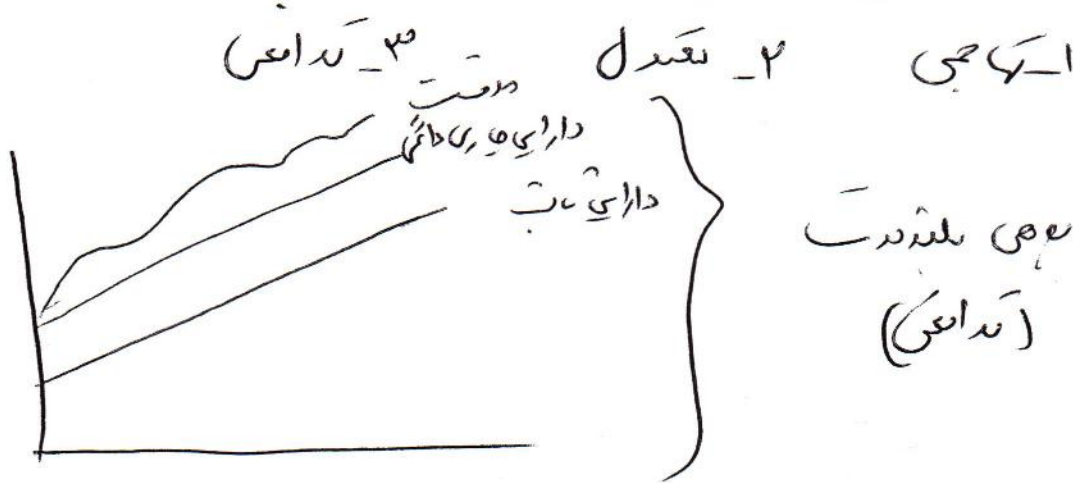 ۱_ تهاجمی    ۲_ متعادل    ۳_ تدافعی
موقت
دارایی جاری دائمی
دارایی ثابت
بدهی بلندمدت
(تدافعی)